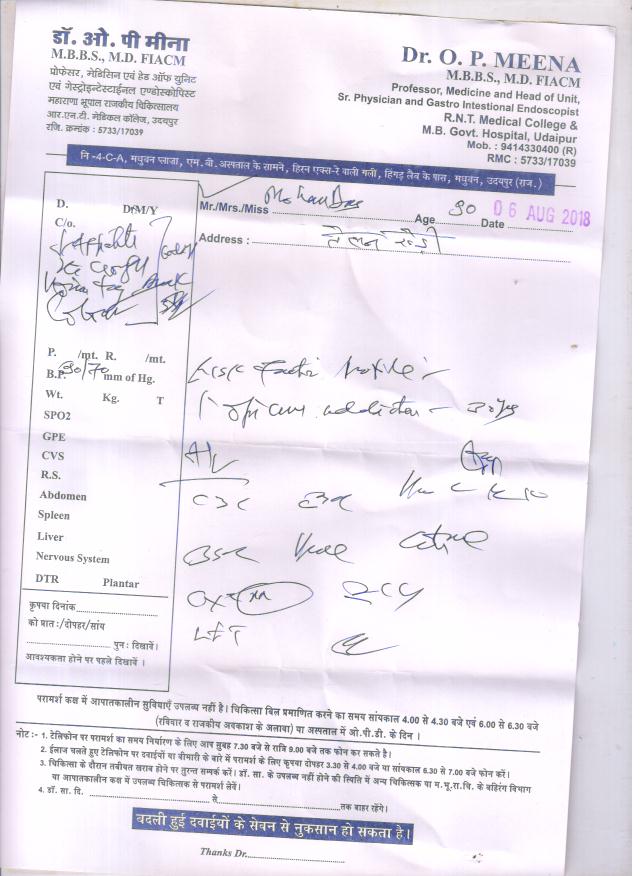 डॉ. ओ. पी मीना
M.B.B.S., M.D. FIACM
प्रोफेसर, मेडिसिन एवं हेड ऑफ यूनिट
एवं गेस्ट्रोइन्टेस्टाईनल एण्डोस्कोपिस्ट
महाराणा भूपाल राजकीय चिकित्सालय
आर.एन.टी. मेडिकल कॉलेज, उदयपुर
रजि. क्रमांक : 5733/17039
Dr. O. P. MEENA
M.B.B.S., M.D. FIACM
Professor, Medicine and Head of Unit,
Sr. Physician and Gastro Intestional Endoscopist
R.N.T. Medical College &
M.B. Govt. Hospital, Udaipur
Mob. : 9414330400 (R)
RMC : 5733/17039
नि -4-C-A, मधुवन प्लाजा, एम.बी. अस्पताल के सामने, हिरन एक्स-रे वाली गली, हिंगड़ लैब के पास, मधुवन, उदयपुर (राज.)
D. D/M/Y
C/o.
Mr./Mrs./Miss Mohandas Age 30 Date 06 AUG 2018
Address :
P. /mt. R. /mt.
B.P. 90/70 mm of Hg.
Wt. Kg. T
SPO2
GPE
CVS
R.S.
Abdomen
Spleen
Liver
Nervous System
DTR Plantar
कृपया दिनांक
को प्रातः/दोपहर/सांय
पुनः दिखावें।
आवश्यकता होने पर पहले दिखावें ।
Risk Factor Profile :-
Opium addiction -
CBC
ECG
LFT
परामर्श कक्ष में आपातकालीन सुविधाएँ उपलब्ध नहीं है। चिकित्सा बिल प्रमाणित करने का समय सांयकाल 4.00 से 4.30 बजे एवं 6.00 से 6.30 बजे
(रविवार व राजकीय अवकाश के अलावा) या अस्पताल में ओ.पी.डी. के दिन ।
नोट :- 1. टेलिफोन पर परामर्श का समय निर्धारण के लिए आप सुबह 7.30 बजे से रात्रि 9.00 बजे तक फोन कर सकते है।
2. ईलाज चलते हुए टेलिफोन पर दवाईयों या बीमारी के बारे में परामर्श के लिए कृपया दोपहर 3.30 से 4.00 बजे या सांयकाल 6.30 से 7.00 बजे फोन करें।
3. चिकित्सा के दौरान तबीयत खराब होने पर तुरन्त सम्पर्क करें। डॉ. सा. के उपलब्ध नहीं होने की स्थिति में अन्य चिकित्सक या म.भू.रा.चि. के बहिरंग विभाग
या आपातकालीन कक्ष में उपलब्ध चिकित्सक से परामर्श लेवें।
4. डॉ. सा. दि. से तक बाहर रहेंगे।
बदली हुई दवाईयों के सेवन से नुकसान हो सकता है।
Thanks Dr.